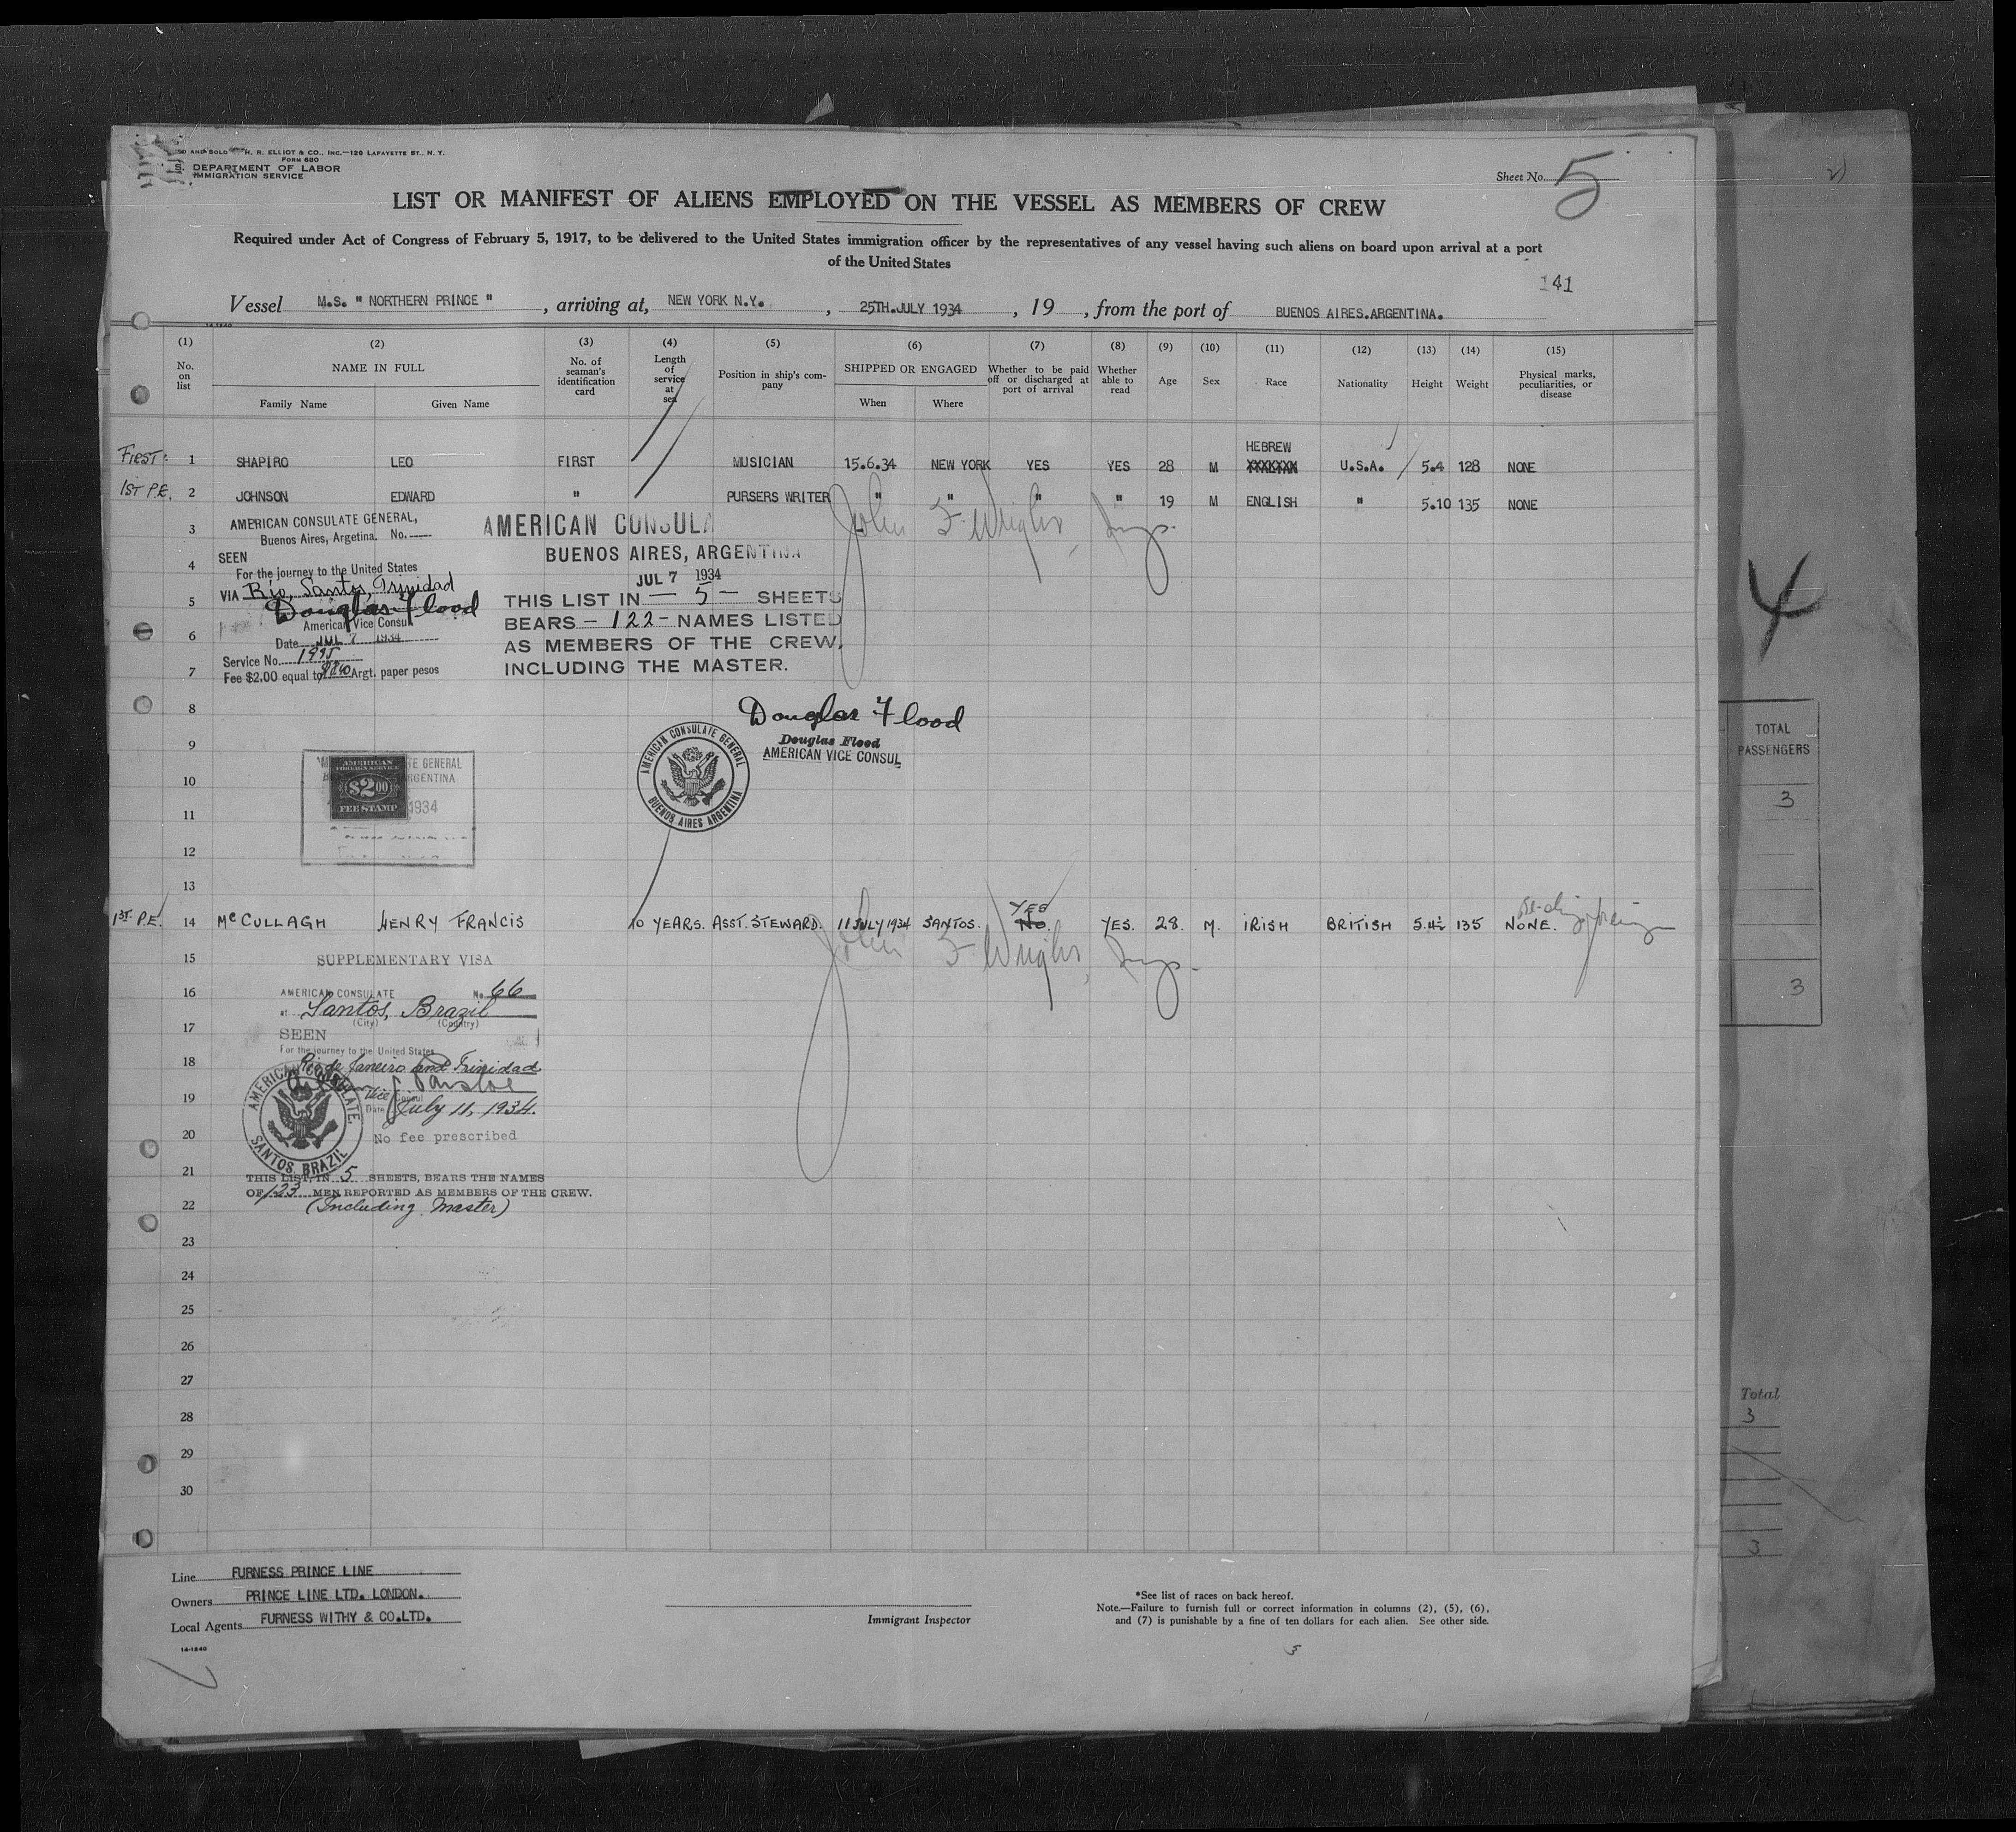 AND SOLD H. R. ELLIOT & CO., INC.—129 LAFAYETTE ST., N. Y.
FORM 680
DEPARTMENT OF LABOR
IMMIGRATION SERVICE
Sheet No. 5
LIST OR MANIFEST OF ALIENS EMPLOYED ON THE VESSEL AS MEMBERS OF CREW
Required under Act of Congress of February 5, 1917, to be delivered to the United States immigration officer by the representatives of any vessel having such aliens on board upon arrival at a port
of the United States
141
Vessel M.S. " NORTHERN PRINCE " , arriving at, NEW YORK N.Y. , 25TH.JULY 1934 , 19 , from the port of BUENOS AIRES.ARGENTINA.
14-1240
(1) (2) (3) (4) (5) (6) (7) (8) (9) (10) (11) (12) (13) (14) (15)
No. on list NAME IN FULL Family Name Given Name No. of seaman's identification card Length of service at sea Position in ship's company SHIPPED OR ENGAGED When Where Whether to be paid off or discharged at port of arrival Whether able to read Age Sex Race Nationality Height Weight Physical marks, peculiarities, or disease
HEBREW
FIRST 1 SHAPIRO LEO FIRST MUSICIAN 15.6.34 NEW YORK YES YES 28 M XXXXXXX U.S.A. 5.4 128 NONE
1ST P.E. 2 JOHNSON EDWARD " PURSERS WRITER " " " " 19 M ENGLISH " 5.10 135 NONE
3 AMERICAN CONSULATE GENERAL,
Buenos Aires, Argetina. No.
SEEN
4 For the journey to the United States
VIA Rio, Santos, Trinidad
5 Douglas Flood
American Vice Consul
6 Date JUL 7 1934
Service No. 1995
7 Fee $2.00 equal to Argt. paper pesos
AMERICAN CONSULA
BUENOS AIRES, ARGENTINA
JUL 7 1934
THIS LIST IN — 5 — SHEETS
BEARS — 122 — NAMES LISTED
AS MEMBERS OF THE CREW,
INCLUDING THE MASTER.
John F. Wright, Insp.
8 Douglas Flood
Douglas Flood
9 AMERICAN VICE CONSUL
AMERICAN CONSULATE GENERAL
BUENOS AIRES ARGENTINA
TE GENERAL
RGENTINA
1934
AMERICAN
FOREIGN SERVICE
10 $2.00
FEE STAMP
11
12
13
YES
1ST P.E. 14 McCULLAGH HENRY FRANCIS 10 YEARS. ASST. STEWARD. 11 JULY 1934 SANTOS. No. YES. 28. M. IRISH BRITISH 5.4½ 135 NONE.
John F. Wright, Insp.
15 SUPPLEMENTARY VISA
16 AMERICAN CONSULATE No. 66
at Santos, Brazil
(City) (Country)
17 SEEN
For the journey to the United States
18 Rio de Janeiro and Trinidad
Vice Consul
19 Date July 11, 1934.
AMERICAN CONSULATE
SANTOS, BRAZIL
20 No fee prescribed
21 THIS LIST, IN 5 SHEETS, BEARS THE NAMES
OF 123 MEN REPORTED AS MEMBERS OF THE CREW.
22 (Including Master)
23
24
25
26
27
28
29
30
Line FURNESS PRINCE LINE
Owners PRINCE LINE LTD. LONDON.
Local Agents FURNESS WITHY & CO.LTD.
14-1240
Immigrant Inspector
*See list of races on back hereof.
Note.—Failure to furnish full or correct information in columns (2), (5), (6),
and (7) is punishable by a fine of ten dollars for each alien. See other side.
5
TOTAL
PASSENGERS
3
3
Total
3
3